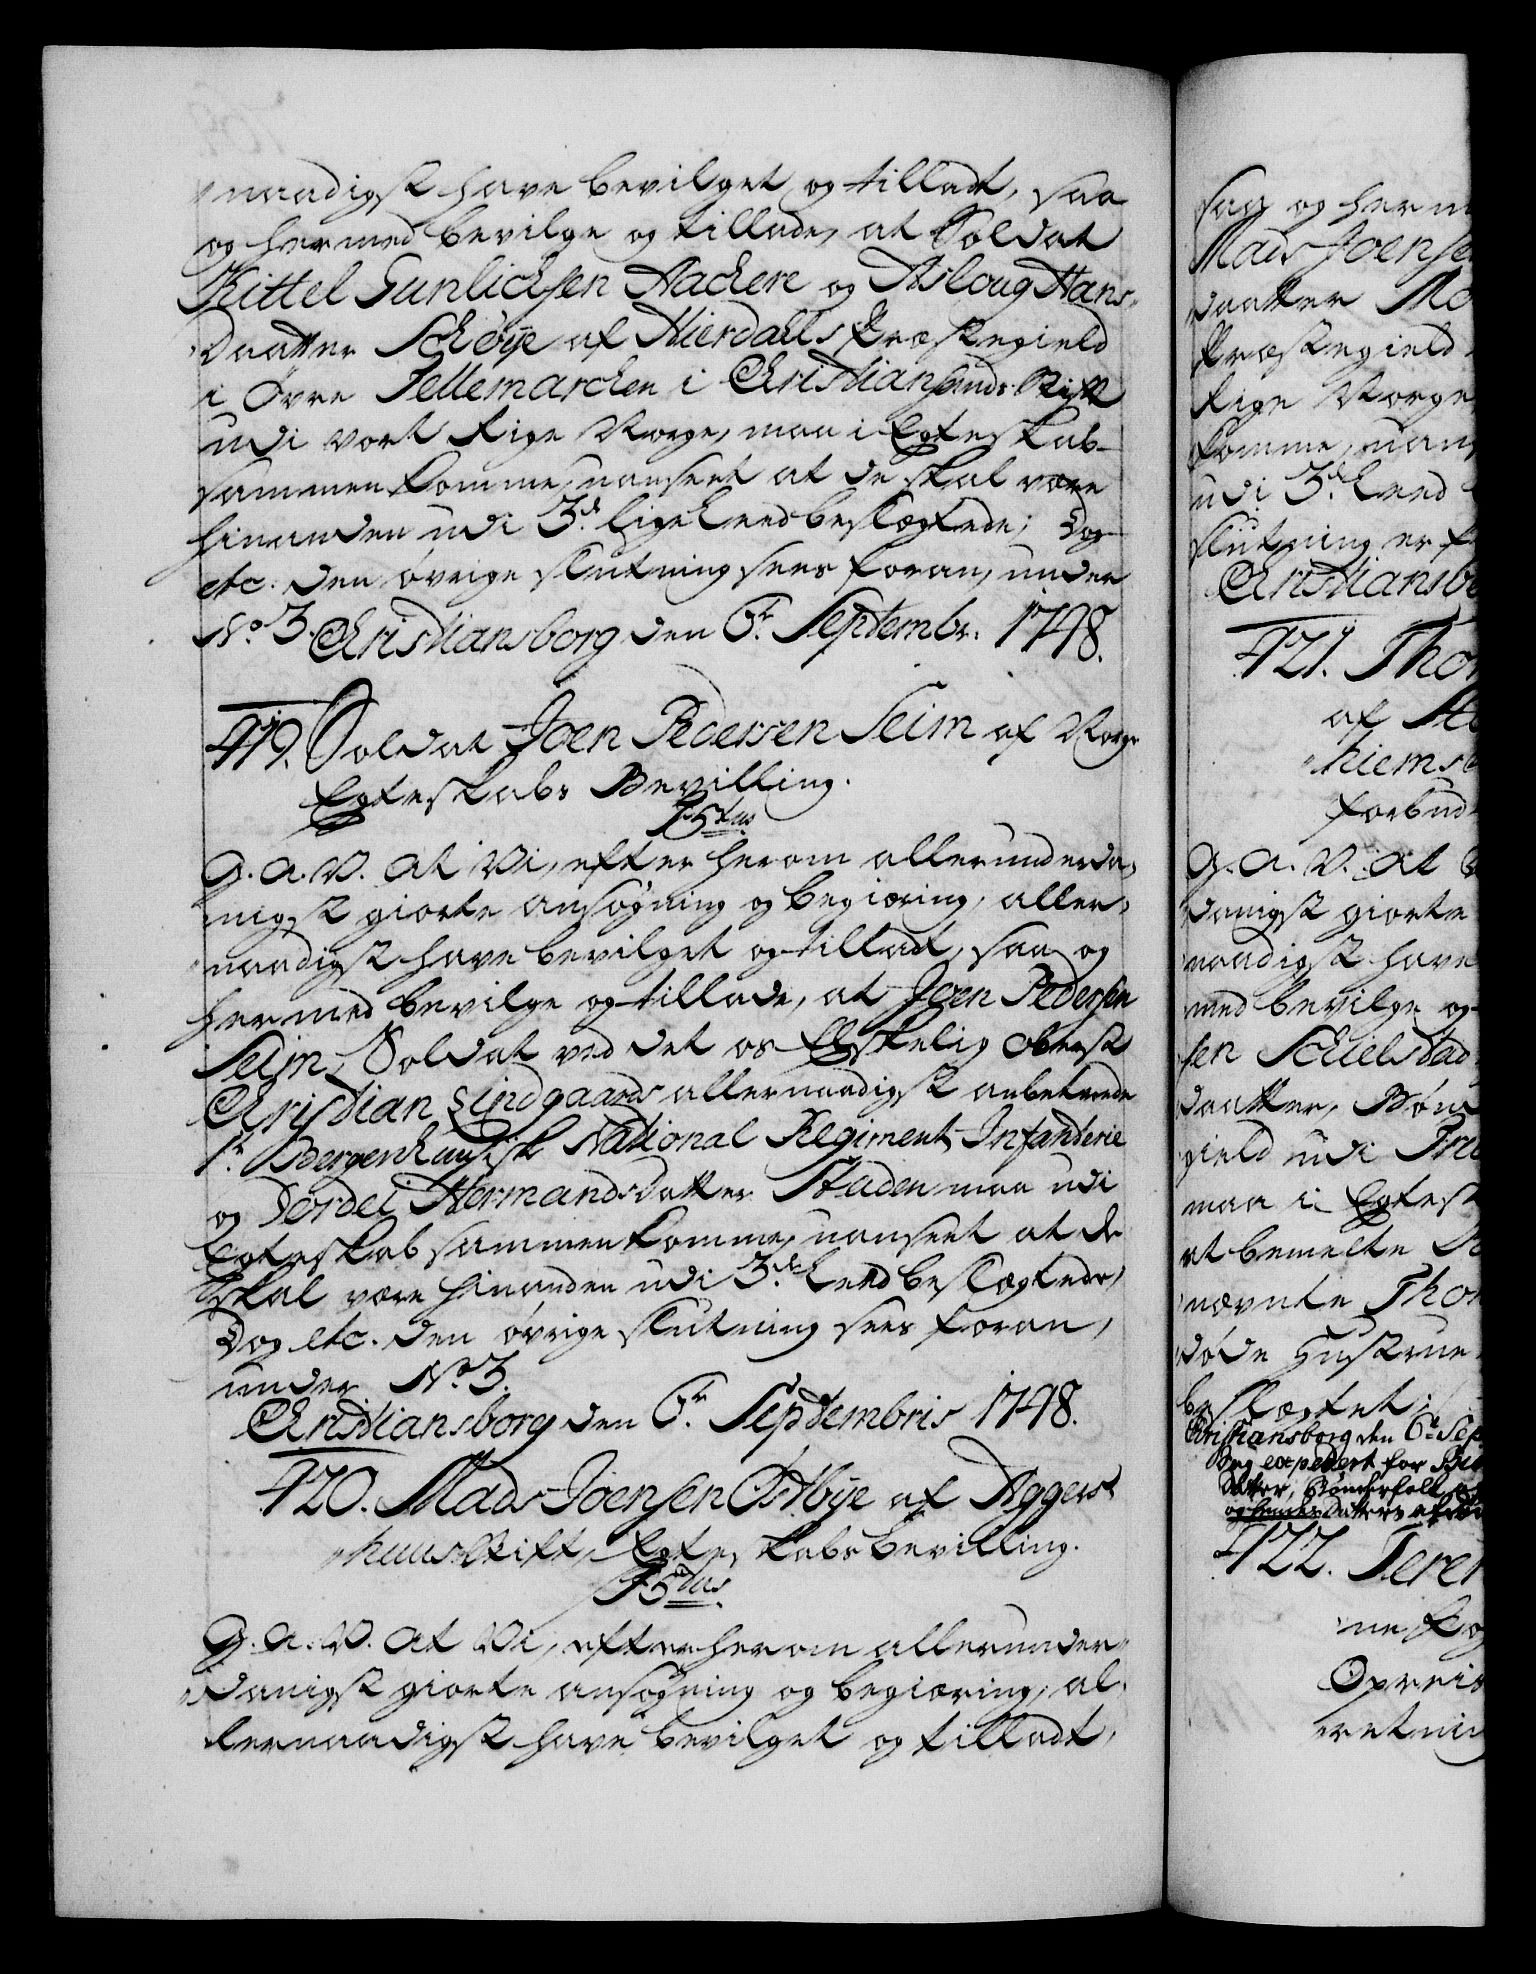 naadigst have bevilget og tilladt, saa
og hermed bevilge og tillade, at Soldat
Kittel Gunlichsen Aackere og Asloug Hans-
daatter Schöye af Hierdahls Præstegield
i Øvre Tellemarcken i Christiansands Stift
udi vort Rige Norge, maa i Egteskab
sammenkomme, uanseet at de skal være
hinanden udi 3de lige Leed beslægtede; Dog
etc. den øvrige slutning sees foran, under
No 3. Christiansborg den 6te Septembr: 1748.
419. Soldat Joen Pedersen Seim af Norge
Egteskabs Bevilling.
F 5tus
G. A. V. At Vi, efter herom allerunderda-
nigst giorte ansøgning og begiæring, aller-
naadigst have bevilget og tilladt, saa og
hermed bevilge og tillade, at Joen Pedersen
Seim, Soldat ved det os Elskelig Oberst
Christian Lindgaards allernaadigst anbetroede
1te Bergenhuusisk National Regiment Infanterie
og Hermandsdatter Staden maa udi
Egteskab sammenkomme, uanseet at de
skal være hinanden udi 3de Leed beslægtede,
Dog etc. den øvrige slutning sees foran,
under No 3.
Christiansborg den 6te Septembris 1748.
420. Mads Joensen Østbye af Aggers-
huus Stift, Egteskabs bevilling.
F 5tus
G. A. V. At Vi, efter herom allerunder-
danigst giorte ansøgning og begiæring, al-
lernaadigst have bevilget og tilladt,
saa og herm
Mads Joense
daatter
Præstegield
Rige Norge
komme, uans
udi 3de Leed
slutning er f
Christiansbo
421. Tho
af
hiems
forbud
G. A. V. At
danigst giorte
naadigst have
med bevilge og
sen
daatter,
gield udi
maa i Egtesk
at bemelte
nævnte Tho
døde Hustrue
beslægtet;
Christiansborg den 6te Sep
Brev expedert for
datter, Bønderfolk
422.
Opreis
retning